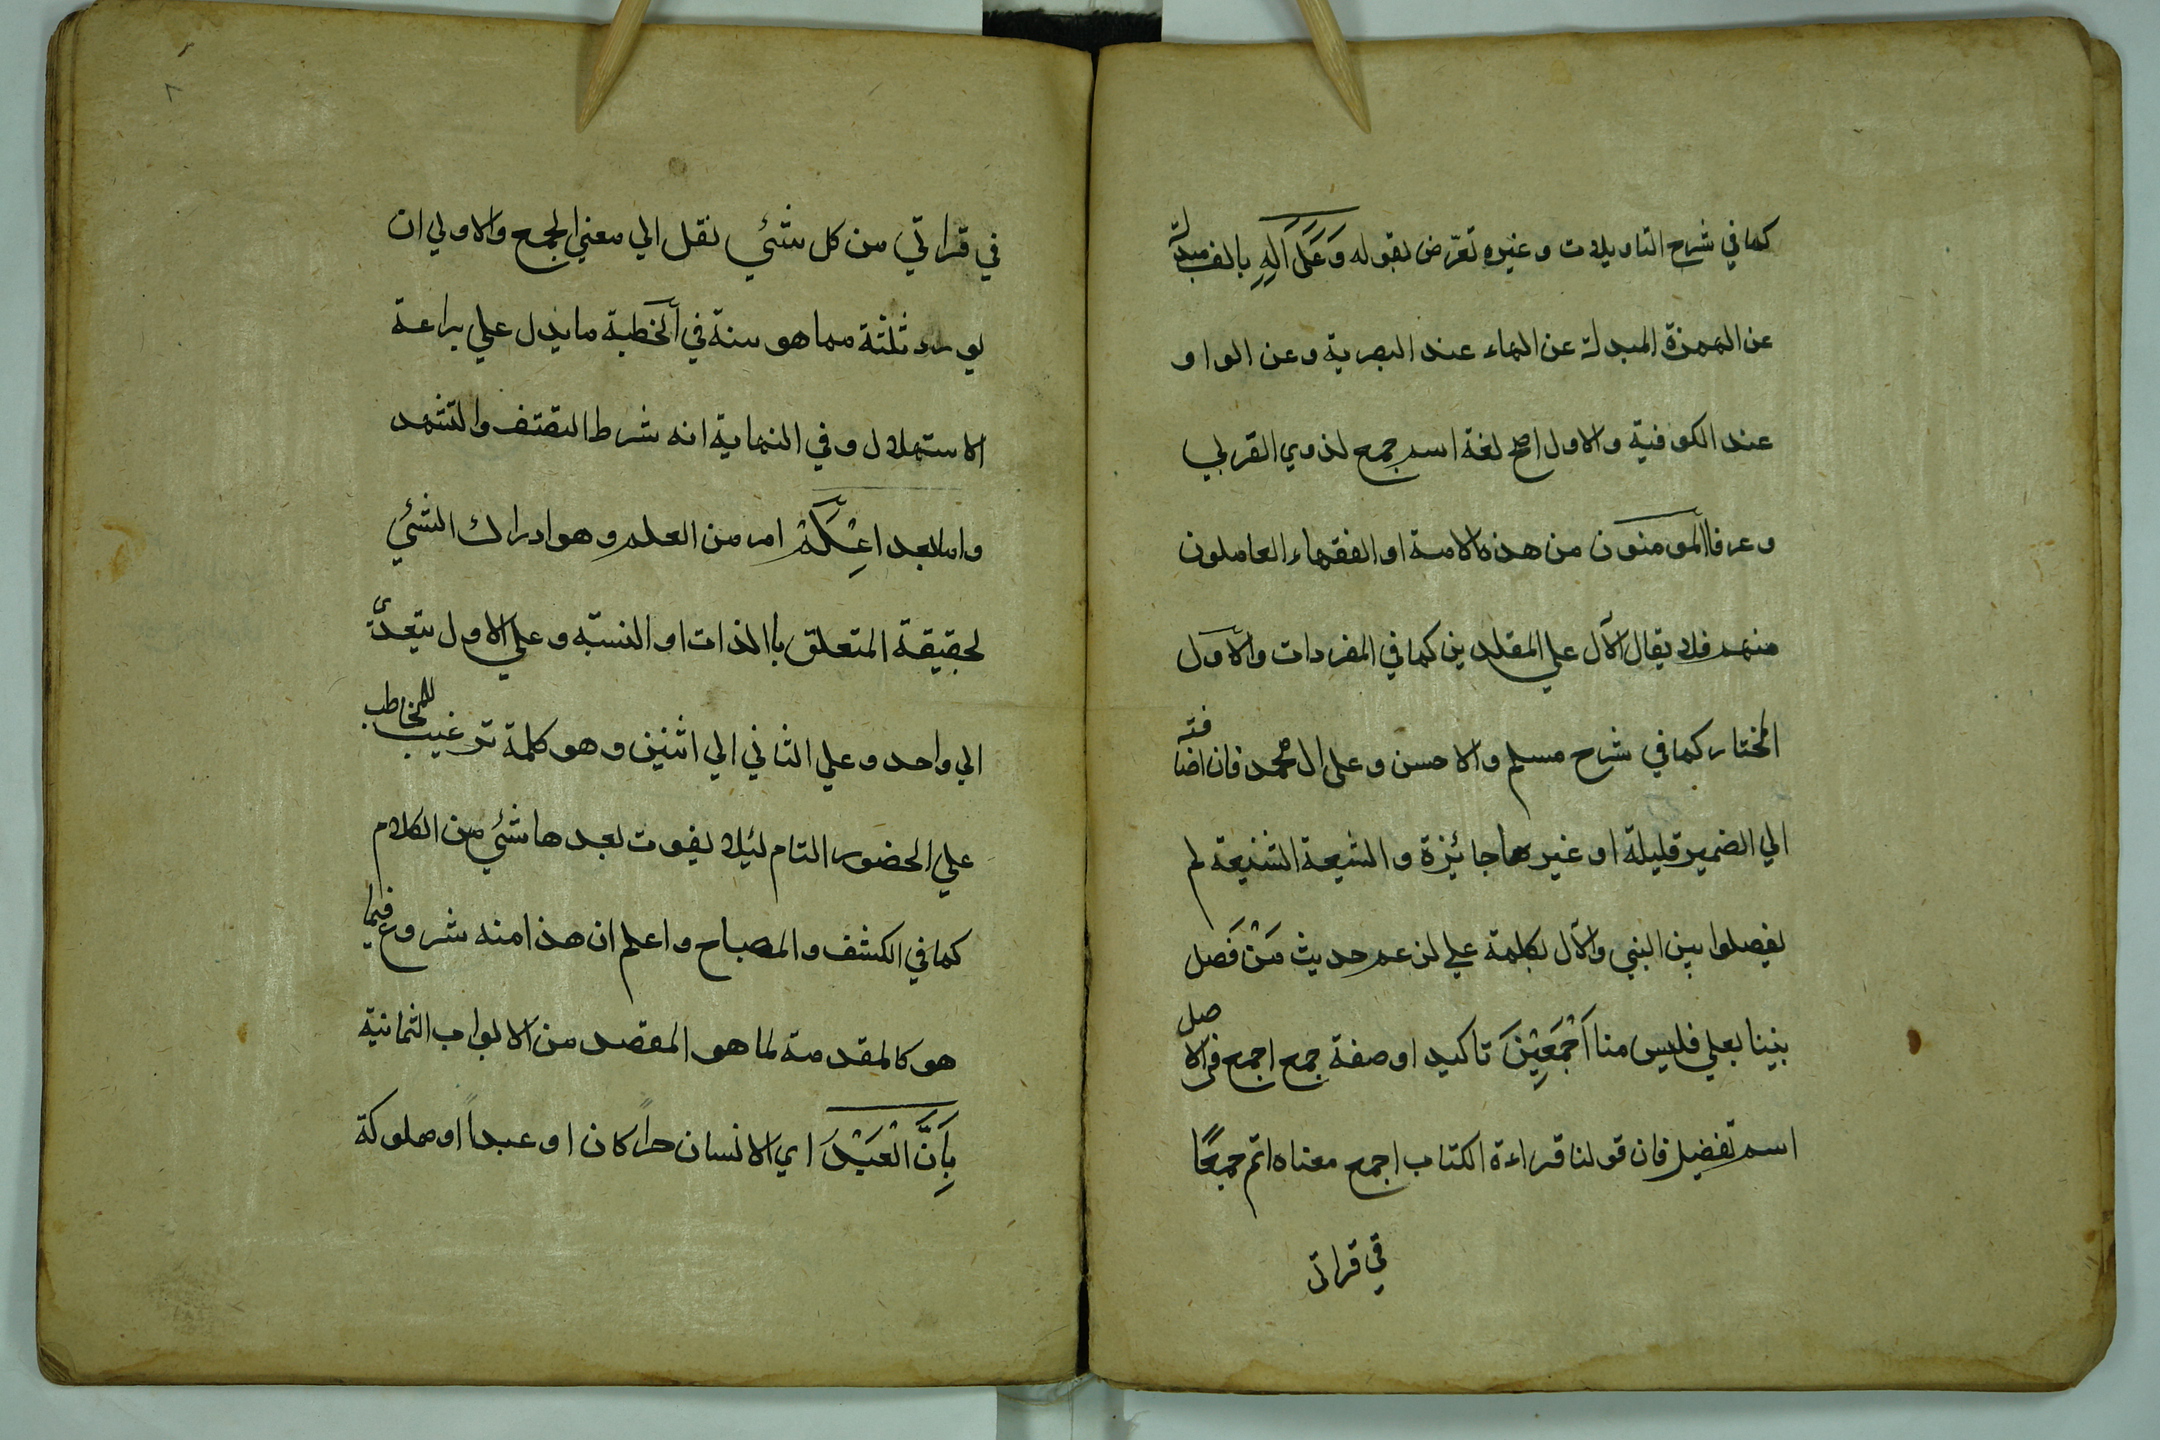 كما في شرح التاويلات وغيره تعرّض بقوله وَعَلَى آلِهِ بالف مبدلة
عن الهمزة المبدلة عن الهاء عند البصرية وعن الواو
عند الكوفية والاول اصح لغة اسم جمع لذوي القربي
وعرفا المومنون من هذه الامة او الفقهاء العاملون
منهم فلا يقال الآل علي المقلدين كما في المفردات والاول
المختار كما في شرح مسلم والاحسن وعلى ال محمد فان اضافته
الي الضمير قليلة او غير جائزة والشيعة الشنيعة لم
يفصلوا بين النبي والآل بكلمة علي لزعم حديث مَنْ فَصل
بيننا بعلي فليس منا اَجْمَعِيْنَ تاكيد او صفة جمع اجمع في الاصل
اسم تفضيل فان قولنا قراءة الكتاب اجمع معناه اتم جميعًا
في قراتي
في قراتي من كل شئي نقل الي معني الجمع والاولي ان
يورد ثلثة مما هو سنة في الخطبة ما يدل علي براعة
الاستهلال وفي النهاية انه شرط التقتف والتشهد
واما بعد اعْلَمْ امر من العلم وهو ادراك الشئي
بحقيقة المتعلق باالذات او النسبة وعلي الاول يتعدّي
الي واحد وعلي الثاني الي اثنين وهو كلمة ترغيب للمخاطب
علي الحضور التام لئلا يفوت بعدها شئي من الكلام
كما في الكشف والمصباح واعلم ان هذا منه شروع فيما
هو كالمقدمة لما هو المقصد من الابواب الثمانية
بِاَنَّ الْعَبْدَ اي الانسان حراً كان او عبداً او مملوكة
٨